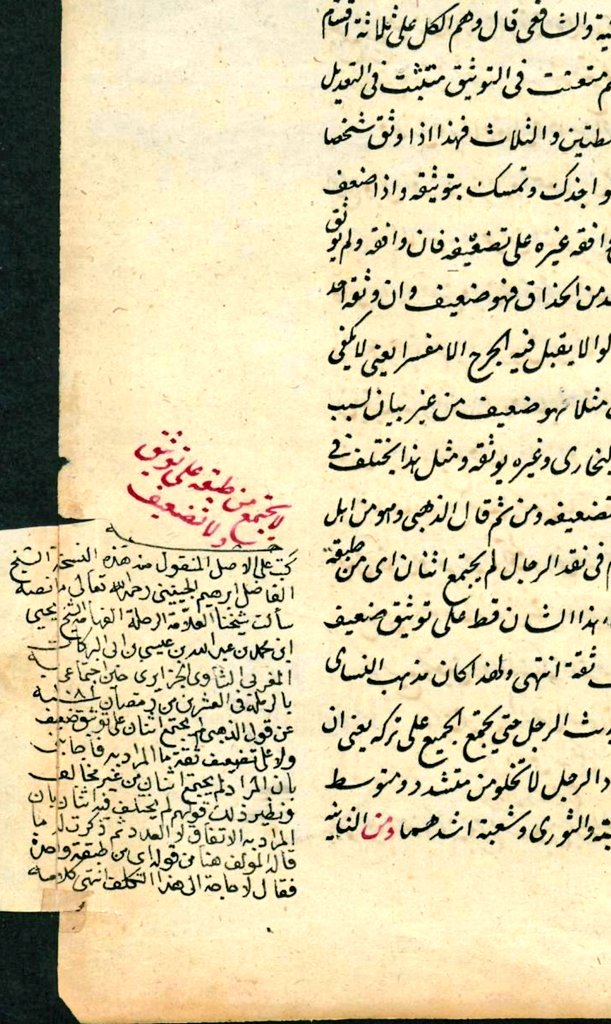 ية والشافعى قال وهم الكل على ثلاثة اقسام
م متعنت فى التوثيق متثبت فى التعديل
لطتين والثلاث فهذا اذا وثق شخصا
واجذك وتمسك بتوثيقه واذا ضعف
وافقه غيره على تضعيفه فان وافقه ولم يوثق
من الحذاق فهو ضعيف وان وثقه احد
لوا لا يقبل فيه الجرح الا مفسرا يعنى لا يكفى
مثلا هو ضعيف من غير بيان لسبب
البخارى وغيره يوثقه ومثل هذا يختلف فى
تضعيفه ومن ثم قال الذهبى وهو من اهل
م فى نقد الرجال لم يجتمع اثنان اى من طبقة
هذا الشان قط على توثيق ضعيف
ثقة انتهى ولهذا كان مذهب النساى
يث الرجل حتى يجتمع الجميع على تركه يعنى ان
د الرجل لا تخلو من متشدد ومتوسط
والثورى وشعبة اشدهما ومن الثانية
لا يجتمع من طبقة على توثيق
ولا تضعيف
كتب على الاصل المنقول منه هذه النسخة الشيخ
الفاضل ابرهيم الجينينى رحمه الله تعالى ما نصه
سألت شيخنا العلامة الرحلة الفهامة الشيخ يحيى
ابن محمد بن عبد الله بن عيسى بن ابى البركات
المغربى الشاوى الجزايرى حين اجتماعى به
بالرملة فى العشرين من رمضان ١٠٨١ سنة
عن قول الذهبى لم يجتمع اثنان على توثيق ضعيف
ولا على تضعيف ثقة ما المراد به فاجابنى
بان المراد لم يجتمع اثنان من غير مخالف
ونظير ذلك قولهم لم يختلف فيه اثنان بان
المراد به الاتفاق لا العدد ثم ذكرت له ما
قاله المؤلف هنا من قوله اى من طبقة واحدة
فقال لا حاجة الى هذا التكلف انتهى كلامه